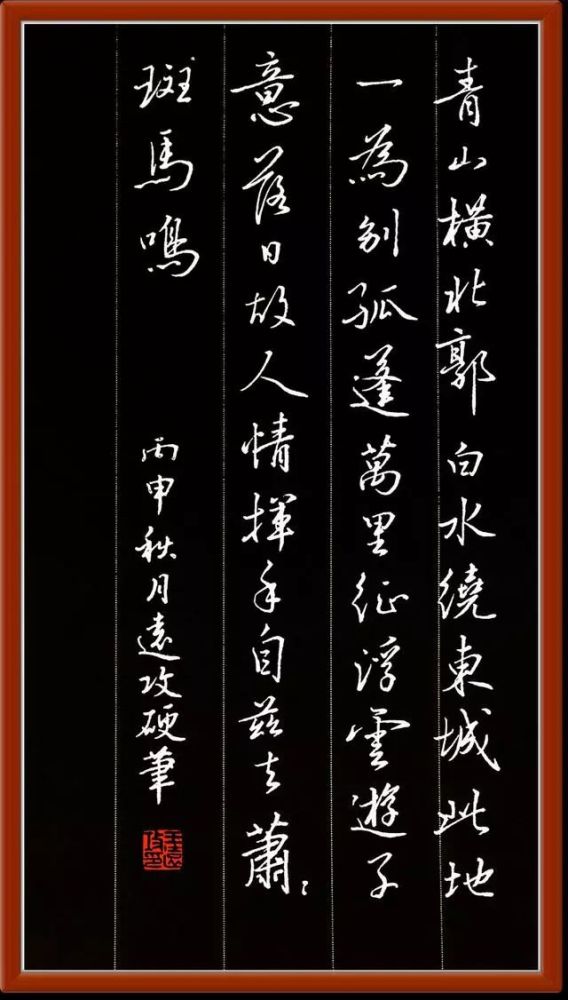 青山橫北郭白水繞東城此地
一為別孤蓬萬里征浮雲遊子
意落日故人情揮手自茲去蕭〻
班馬鳴
丙申秋月遠攻硬筆